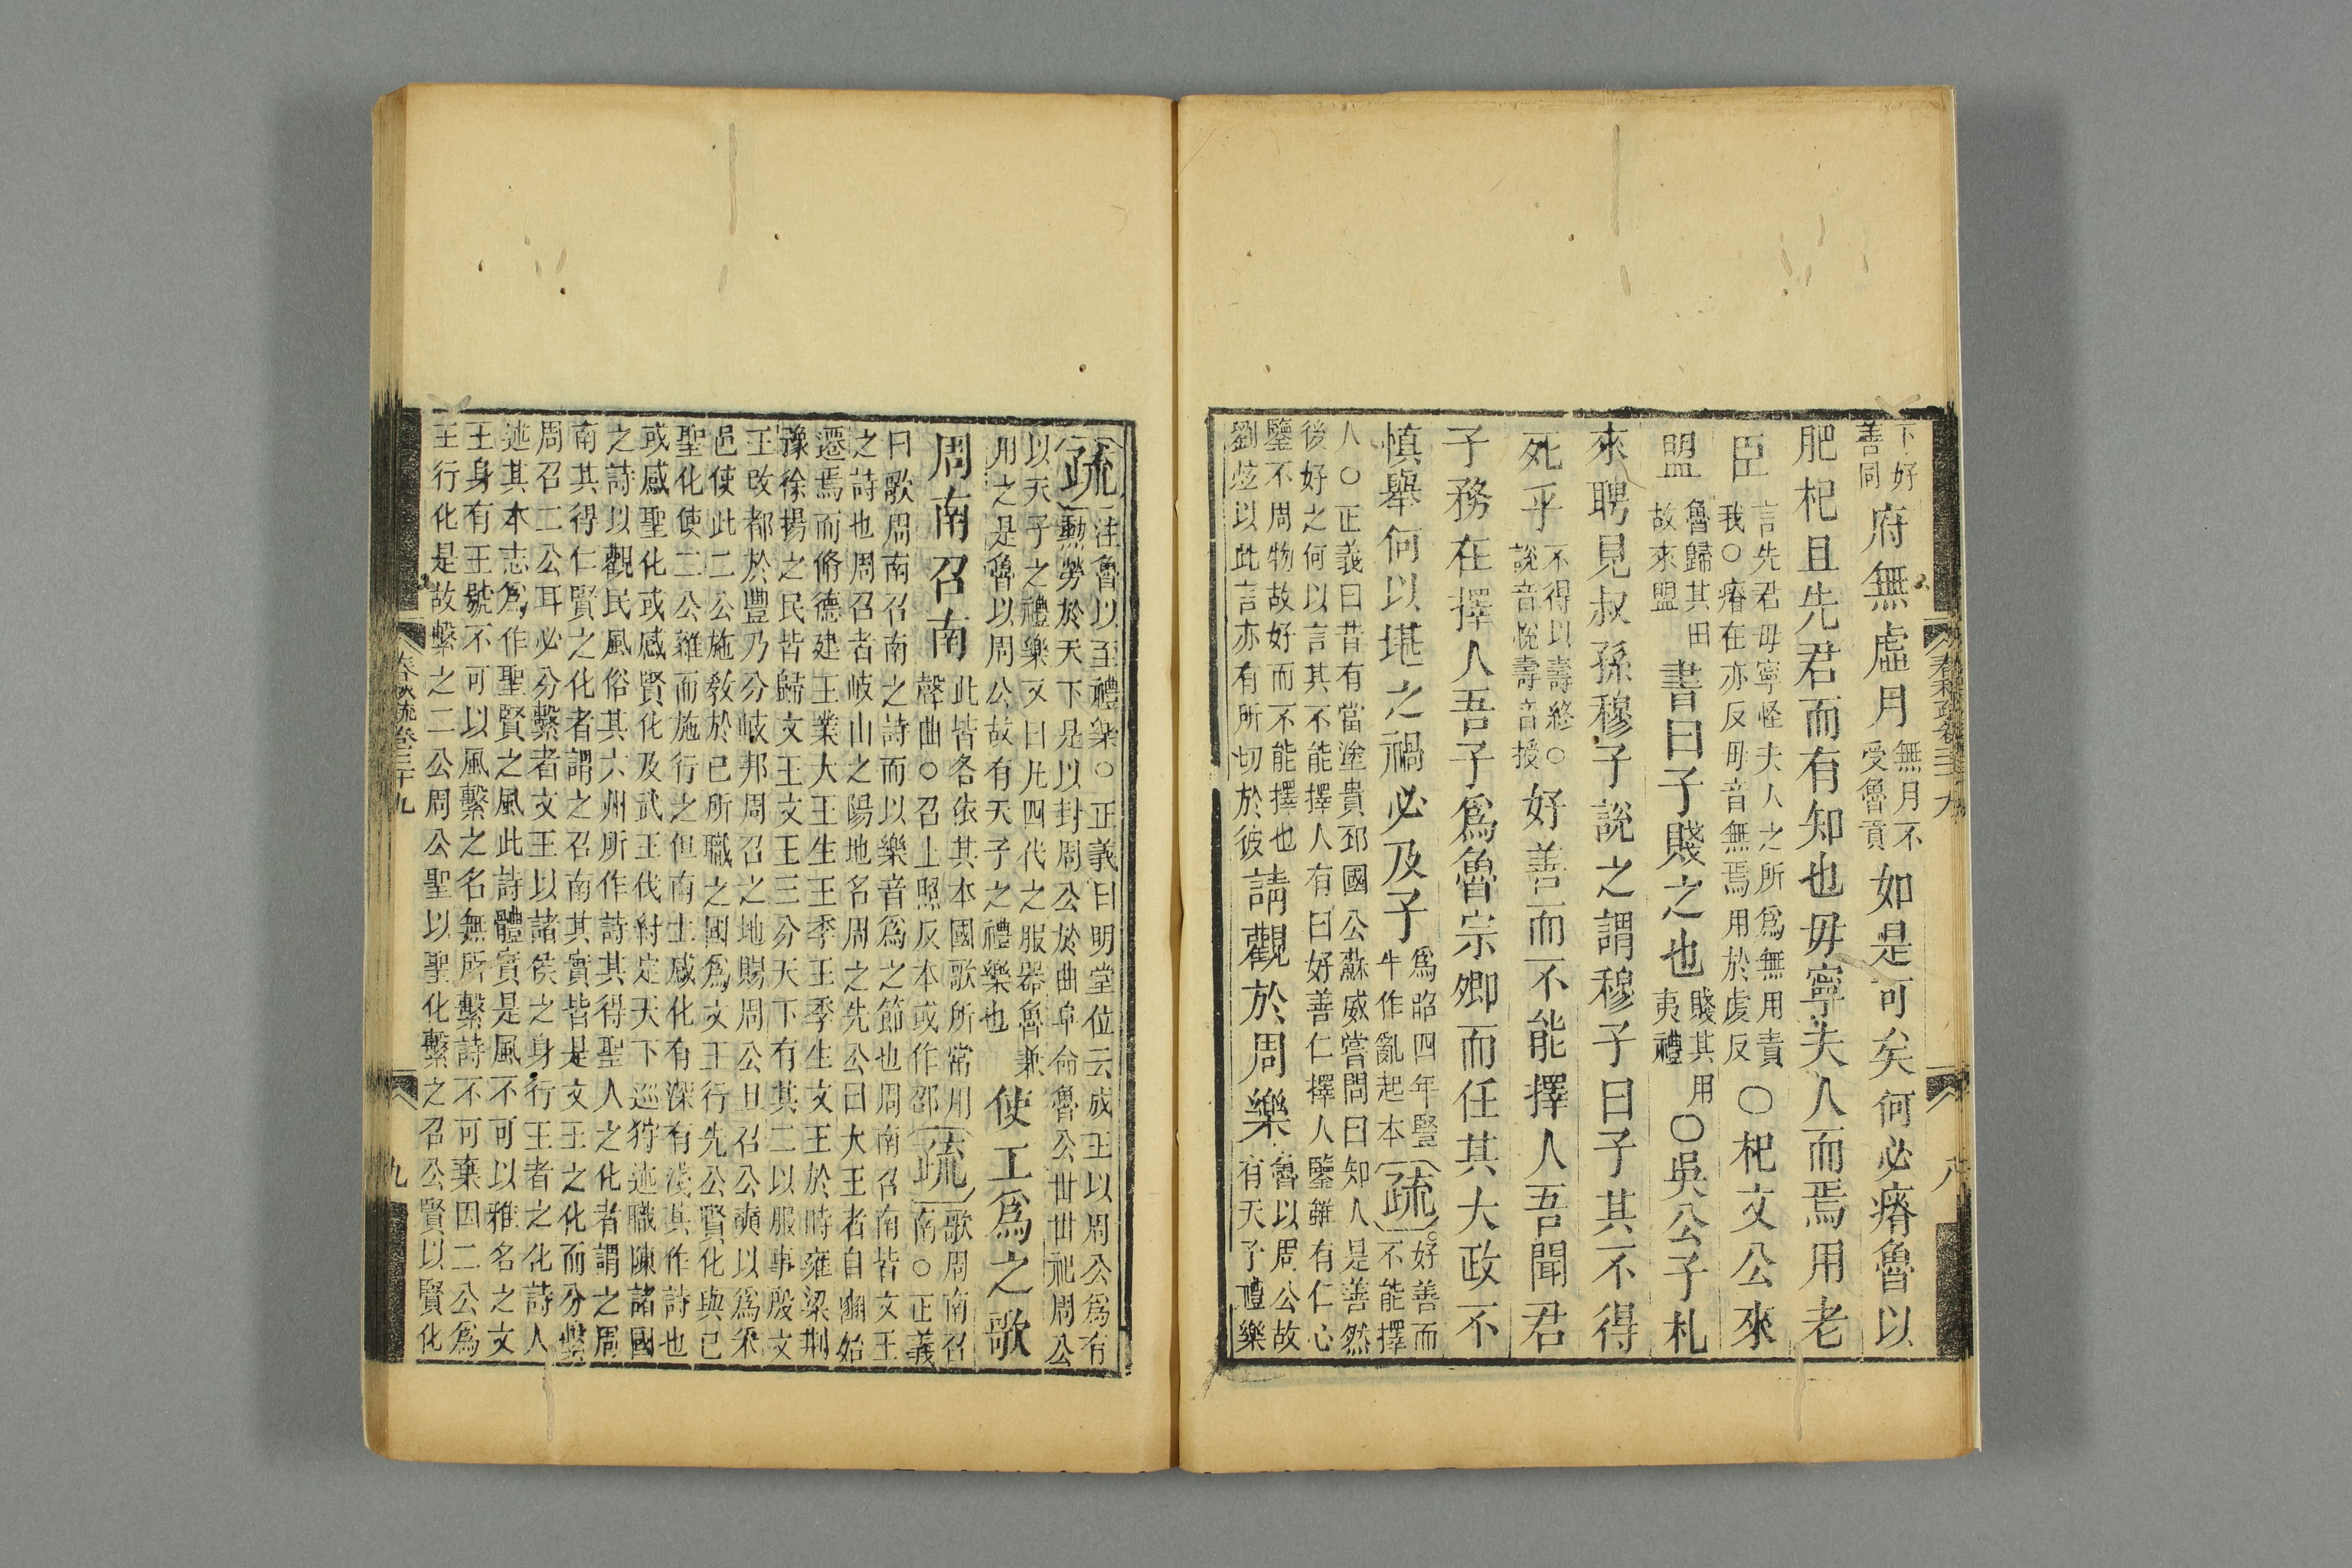 下好
善同
府無虛月
無月不
受魯貢
如是可矣何必瘠魯以
肥杞且先君而有知也毋寧夫人而焉用老
臣
言先君毋寧怪夫人之所爲無用責
我○瘠在亦反毋音無焉用於虔反
○杞文公來
盟
魯歸其田
故來盟
書曰子賤之也
賤其用
夷禮
○吳公子札
來聘見叔孫穆子說之謂穆子曰子其不得
死乎
不得以壽終○
說音悅壽音授
好善而不能擇人吾聞君
子務在擇人吾子爲魯宗卿而任其大政不
慎舉何以堪之禍必及子
爲昭四年豎
牛作亂起本
疏
好善而
不能擇
人○正義曰昔有當塗貴邳國公蘇威嘗問曰知人是善然
後好之何以言其不能擇人有曰好善仁擇人鑒雖有仁心
鑒不周物故好而不能擇也
劉炫以此言亦有所切於彼
請觀於周樂
魯以周公故
有天子禮樂
春秋疏卷三十九
八
疏
注魯以至禮樂○正義曰明堂位云成王以周公爲有
勳勞於天下是以封周公於曲阜命魯公世世祀周公
以天子之禮樂又曰凡四代之服器魯兼
用之是魯以周公故有天子之禮樂也
使工爲之歌
周南召南
此皆各依其本國歌所常用
聲曲○召上照反本或作邵
疏
歌周南召
南○正義
曰歌周南召南之詩而以樂音爲之節也周南召南皆文王
之詩也周召者岐山之陽地名周之先公曰大王者自豳始
遷焉而脩德建王業大王生王季王季生文王於時雍梁荆
豫徐揚之民皆歸文王文王三分天下有其二以服事殷文
王改都於豐乃分岐邦周召之地賜周公旦召公奭以爲采
邑使此二公施敎於已所職之國爲文王行先公賢化與己
聖化使二公雜而施行之但南土感化有深有淺其作詩也
或感聖化或感賢化及武王伐紂定天下巡狩述職陳諸國
之詩以觀民風俗其六州所作詩其得聖人之化者謂之周
南其得仁賢之化者謂之召南其實皆是文王之化而分繫
周召二公耳必分繫者文王以諸侯之身行王者之化詩人
述其本志爲作聖賢之風此詩體實是風不可以雅名之文
王身有王號不可以風繫之名無所繫詩不可棄因二公爲
王行化是故繫之二公周公聖以聖化繫之召公賢以賢化
春秋疏卷三十九
九